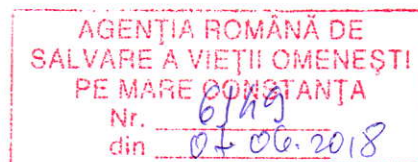 AGENȚIA ROMÂNĂ DE
SALVARE A VIEȚII OMENEȘTI
PE MARE CONSTANȚA
Nr.
din 07 06. 2018